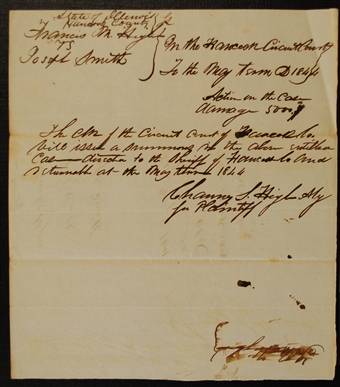 State of Illinois
Hancock County
Francis M Higbee
vs
Joseph Smith
In the Hancock Circuit Court
To the May term AD 1844
Action on the Case
damage 5000$
The Clk of the Circuit Court of Hancock Co
will issue a summons in the above entitled
Case directed to the Sheriff of Hancock Co and
returnable at the May term 1844
Chauncy L. Higbee Atty
for Plaintiff